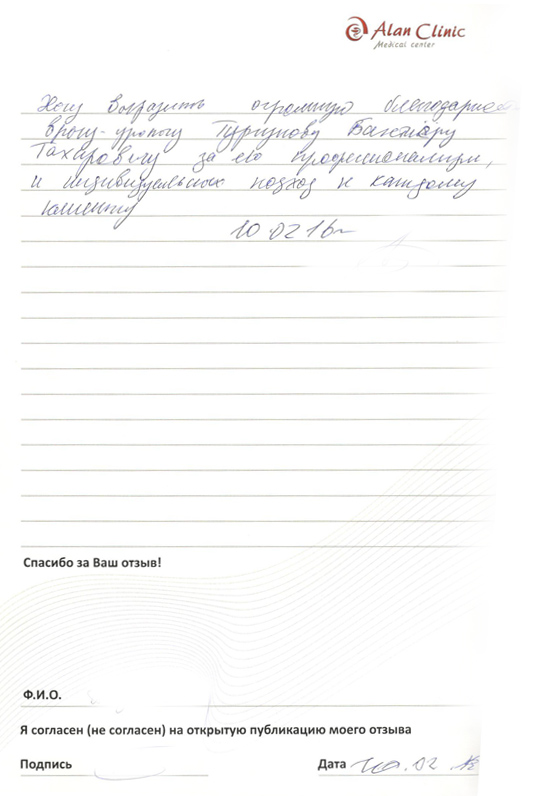 Alan Clinic
Medical center
Хочу выразить огромную благодарность
врачу-урологу Турсунову Бахтиёру
Тахировичу за его профессионализм,
и индивидуальных подход к каждому
клиенту
10.02 16г
Спасибо за Ваш отзыв!
Ф.И.О.
Я согласен (не согласен) на открытую публикацию моего отзыва
Подпись
Дата 10.02